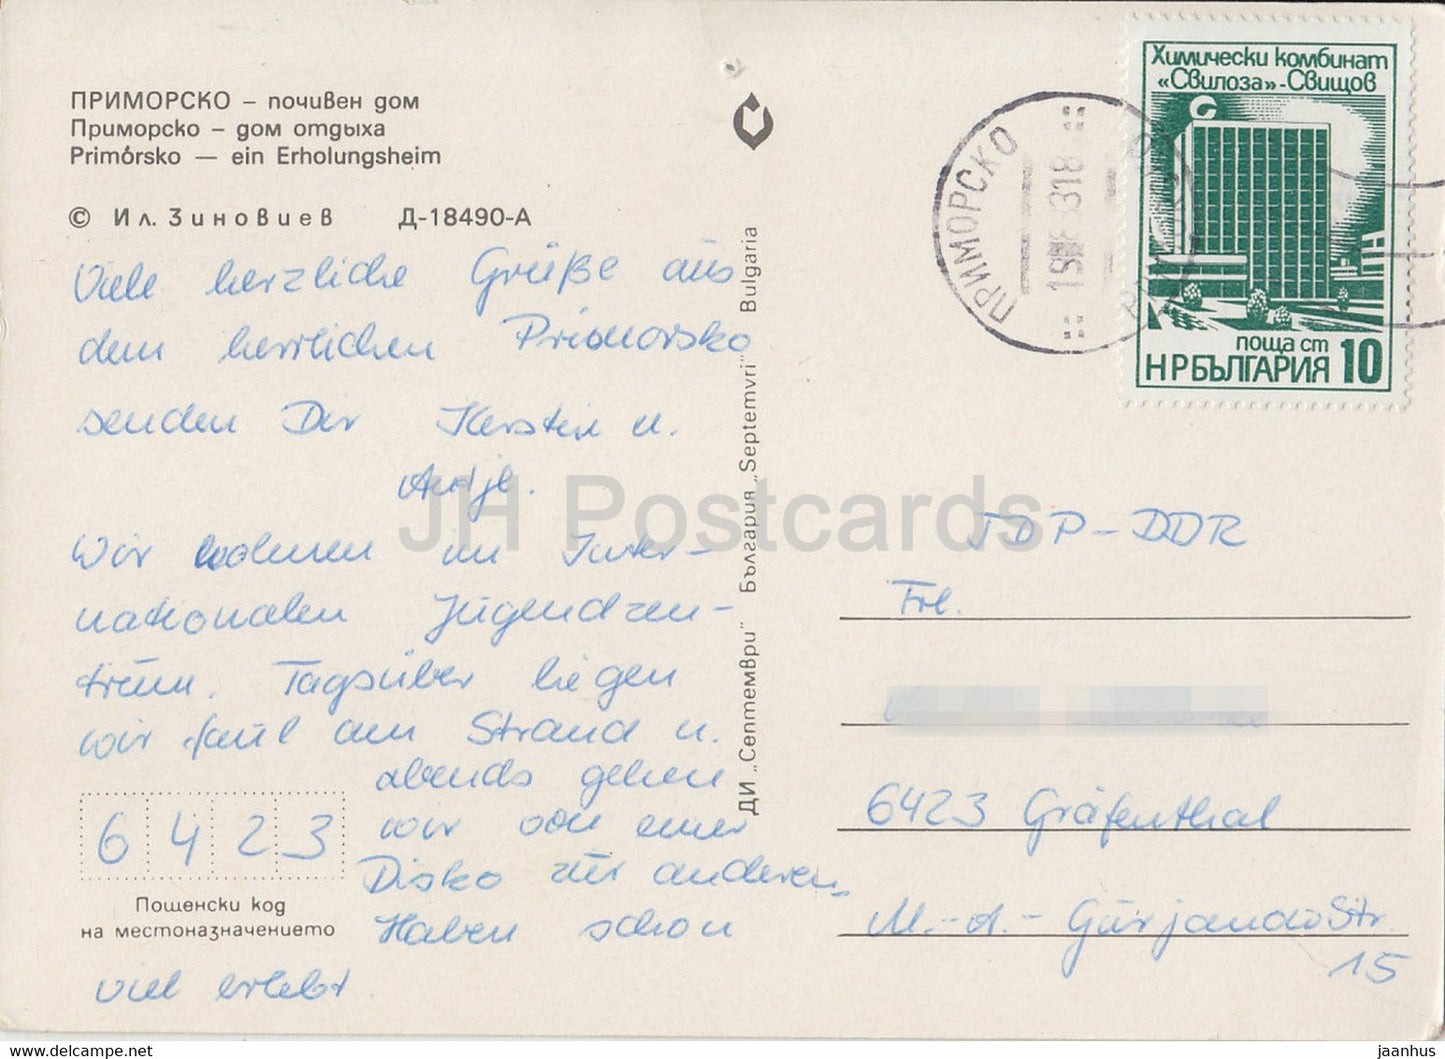 ПРИМОРСКО – почивен дом
Приморско – дом отдыха
Primórsko — ein Erholungsheim
© Ил. Зиновиев Д-18490-А
Viele herzliche Grüße aus
dem herrlichen Primorsko
senden Dir Kerstin u.
Antje.
Wir wohnen im Inter-
nationalen Jugendzen-
trum. Tagsüber liegen
wir faul am Strand u.
abends gehen
wir von einer
Disko zur anderen.
Haben schon
viel erlebt
6423
Пощенски код
на местоназначението
ДИ „Септември" България „Septemvri" Bulgaria
Химически комбинат
«Свилоза»-Свищов
поща ст
НРБЪЛГАРИЯ 10
ПРИМОРСКО
JH Postcards
TDP-DDR
Frl.
6423 Gräfenthal
M.-d.-Gurjanow Str.
15
www.delcampe.net
jaanhus